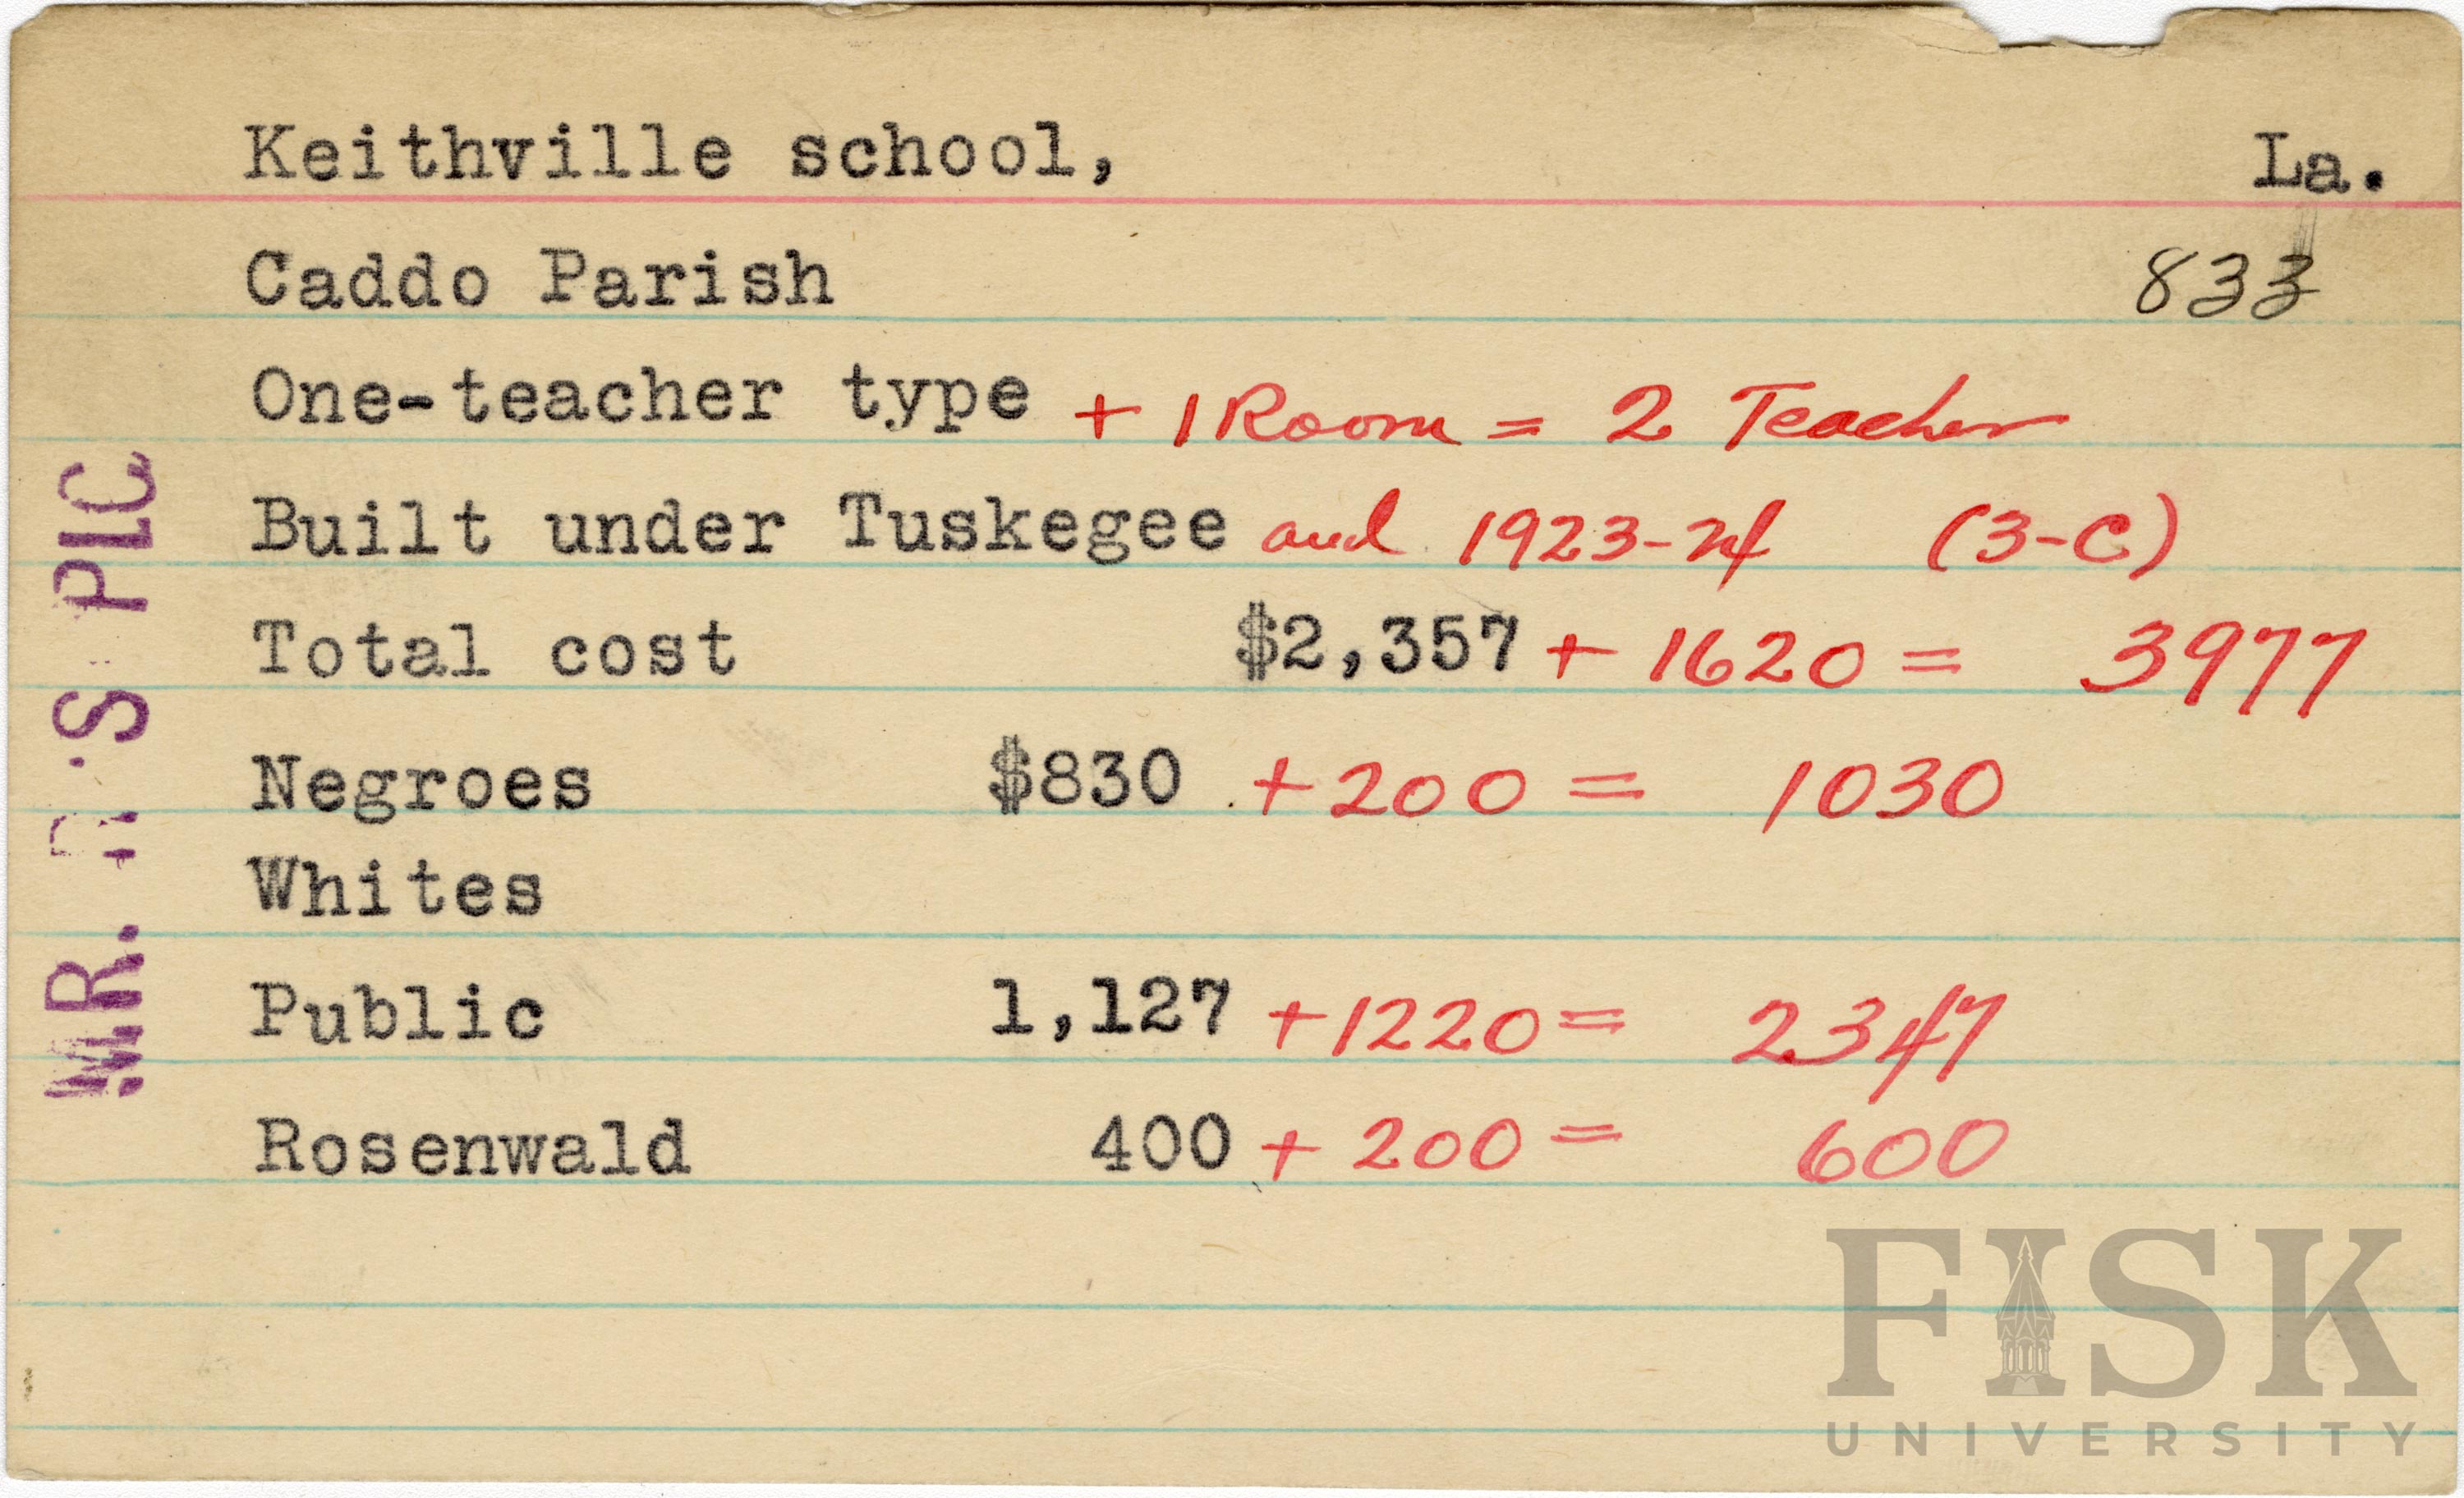 Keithville school, La.
Caddo Parish 833
One-teacher type + 1 Room = 2 Teacher
Built under Tuskegee and 1923-24 (3-C)
Total cost $2,357 + 1620 = 3977
Negroes $830 + 200 = 1030
Whites
Public 1,127 + 1220 = 2347
Rosenwald 400 + 200 = 600
MR. PIC
FISK
UNIVERSITY